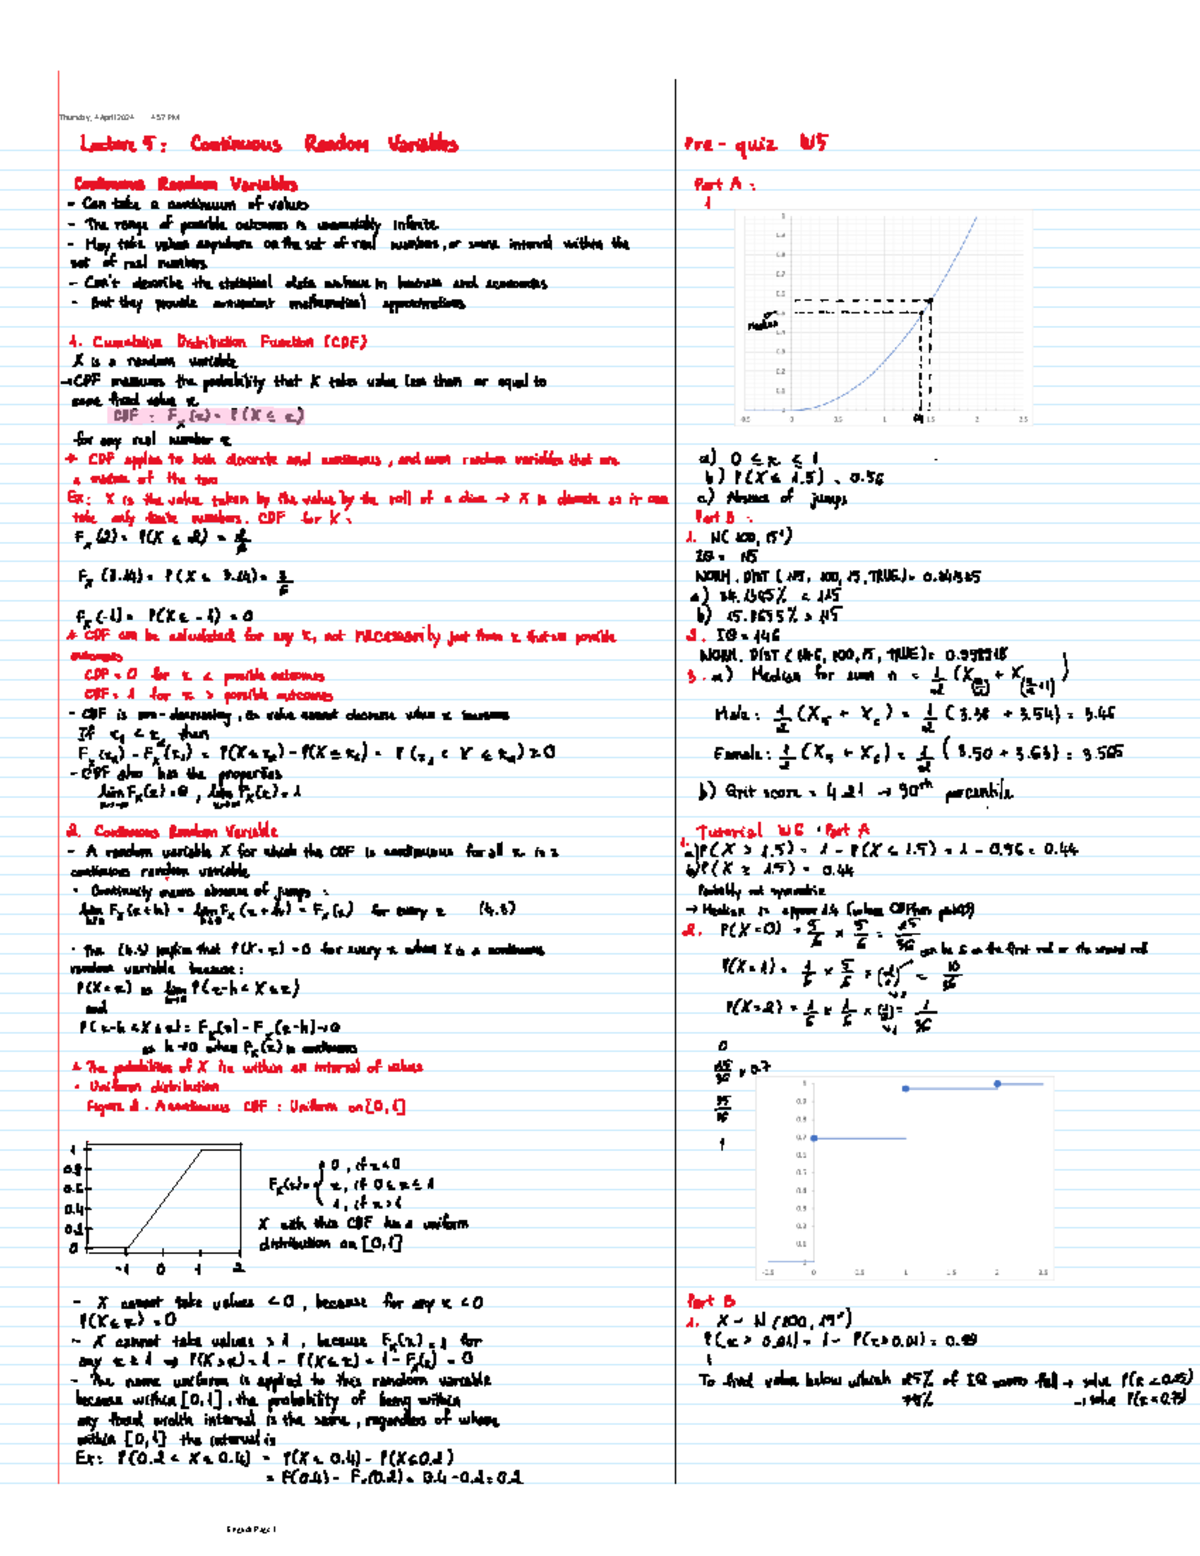 Thursday, 4 April 2024 4:57 PM
Lecture 5: Continuous Random Variables
Continuous Random Variables
- Can take a continuum of values
- The range of possible outcomes is uncountably infinite
- May take values anywhere on the set of real numbers, or some interval within the
set of real numbers
- Can't describe the statistical data we have in business and economics
- But they provide convenient mathematical approximations
1. Cumulative Distribution Function (CDF)
X is a random variable
→ CDF measures the probability that X takes value less than or equal to
some fixed value x
CDF : F_X(x) = P(X ≤ x)
for any real number x
* CDF applies to both discrete and continuous, and even random variables that are
a mixture of the two
Ex: X is the value taken by the value by the roll of a dice → X is discrete as it can
take only finite numbers. CDF for X:
F_X(2) = P(X ≤ 2) = 2/6
F_X(3.14) = P(X ≤ 3.14) = 3/6
F_X(-1) = P(X ≤ -1) = 0
* CDF can be calculated for any x, not necessarily just those x that are possible
outcomes
CDF = 0 for x < possible outcomes
CDF = 1 for x > possible outcomes
- CDF is non-decreasing, its value cannot decrease when x increases
If x₁ < x₂ then
- CDF also has the properties
2. Continuous Random Variable
- A random variable X for which the CDF is continuous for all x is a
continuous random variable
• Continuity means absence of jumps:
for every x
• The implies that P(X = x) = 0 for every x when X is a continuous
random variable because:
P(X = x) = lim P(x-h < X ≤ x)
and
P(x-h < X ≤ x) = F_X(x) - F_X(x-h) → 0
as h → 0 when F_X(x) is continuous
* The probabilities of X lie within an interval of values
• Uniform distribution
Figure 2. A continuous CDF: Uniform on [0,1]
1
0.8
0.6
0.4
0.2
0
-1 0 1 2
F_X(x) = { 0, if x < 0
x, if 0 ≤ x ≤ 1
1, if x > 1
X with this CDF has a uniform
distribution on [0,1]
- X cannot take values < 0, because for any x < 0
P(X ≤ x) = 0
- X cannot take values > 1, because F_X(x) = 1 for
any x ≥ 1 → P(X > x) = 1 - P(X ≤ x) = 1 - F_X(x) = 0
- The name uniform is applied to this random variable
because within [0,1], the probability of being within
any fixed width interval is the same, regardless of where
within [0,1] the interval is
Ex: P(0.2 < X ≤ 0.4) = P(X ≤ 0.4) - P(X ≤ 0.2)
= F(0.4) - F_X(0.2) = 0.4 - 0.2 = 0.2
Pre-quiz W5
Part A:
1
Median
a) 0 ≤ x ≤ 1
b) P(X ≤ 1.5) = 0.56
c) Absence of jumps
Part B:
1. N(100, 15²)
IQ = 115
NORM.DIST(115, 100, 15, TRUE) = 0.841345
a) 84.1345% < 115
b) 15.8655% > 115
2. IQ = 146
NORM.DIST(146, 100, 15, TRUE) =
3. a) Median for even n =
Male: 1/2 (X₅ + X₆) = 1/2 (3.38 + 3.54) = 3.46
Female: 1/2 (X₅ + X₆) = 1/2 (3.50 + 3.63) = 3.565
b) Grit score = 4.21 → 90th percentile
Tutorial W6 • Part A
1.
a) P(X > 1.5) = 1 - P(X ≤ 1.5) = 1 - 0.56 = 0.44
b) P(X ≥ 1.5) = 0.44
Probably not symmetric
→ Median is approx 1.4
2. P(X=0) = 5/6 × 5/6 = 25/36
can be 6 on the first roll or the second roll
P(X=1) = 1/6 × 5/6 × = 10/36
P(X=2) = 1/6 × 1/6 × = 1/36
0
25/36 ≈ 0.7
35/36
1
Part B
1. X ~ N(100, 15²)
To find value below which 25% of IQ scores fall → solve P(x < 0.25)
75% → solve P(x < 0.75)